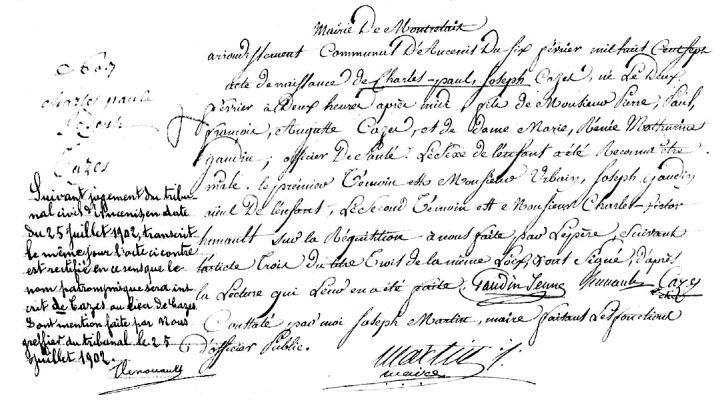 Mairie De Montrelais
arrondissement Communal D'Ancenis Du Six février mil huit Cent sept
acte de naissance de Charles-paul, Joseph Cazes, né Le Deux
février à Deux heures après midi fils de Monsieur Pierre, Paul,
françois, Augutte Cazes, et de Dame Marie, Renée Mathurine
Gaudin; officier De Santé. Le Sexe de l'enfant a été Reconnu être
male. le premier Témoin est Monsieur Urbain, Joseph Gaudin
aïeul De l'enfant, Le Second Témoin est Monsieur Charles-victor
hunault sur la Réquisition à nous faite par Le père, Suivant
l'article Trois du titre Trois de la même Loy, ont Signé, d'après
la Lecture qui Leur en a été faite. Gaudin Jeune hunault Cazes
Constaté par moi Joseph Martin, maire faisant Les fonctions
D'officier Public.
Martin
maire
N° 7
Charles paul
Joseph
Cazes
Suivant jugement du tribu-
nal civil d'Ancenis, en date
du 25 juillet 1902, transcrit
le même jour l'acte ci contre
est rectifié en ce sens que le
nom patronymique sera ins-
crit de Cazes au lieu de Cazes
Dont mention faite par Nous
greffier du tribunal le 25
Juillet 1902.